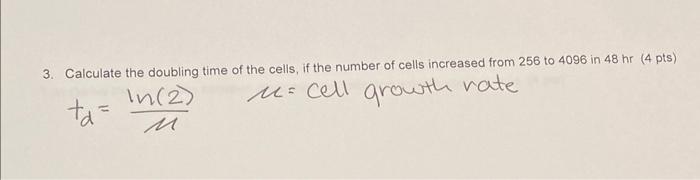 3. Calculate the doubling time of the cells, if the number of cells increased from 256 to 4096 in 48 hr (4 pts)
t_d = ln(2) / μ    μ = cell growth rate